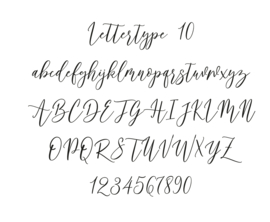 Lettertype 10
abcdefghijklmnopqrstuvwxyz
ABCDEFGHIJKLMN
OPQRSTUVWXYZ
1234567890